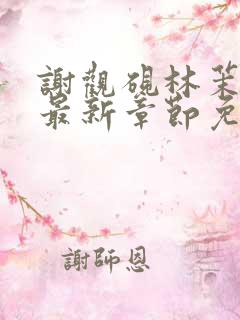 謝觀硯林茉
最新章節免
謝師恩